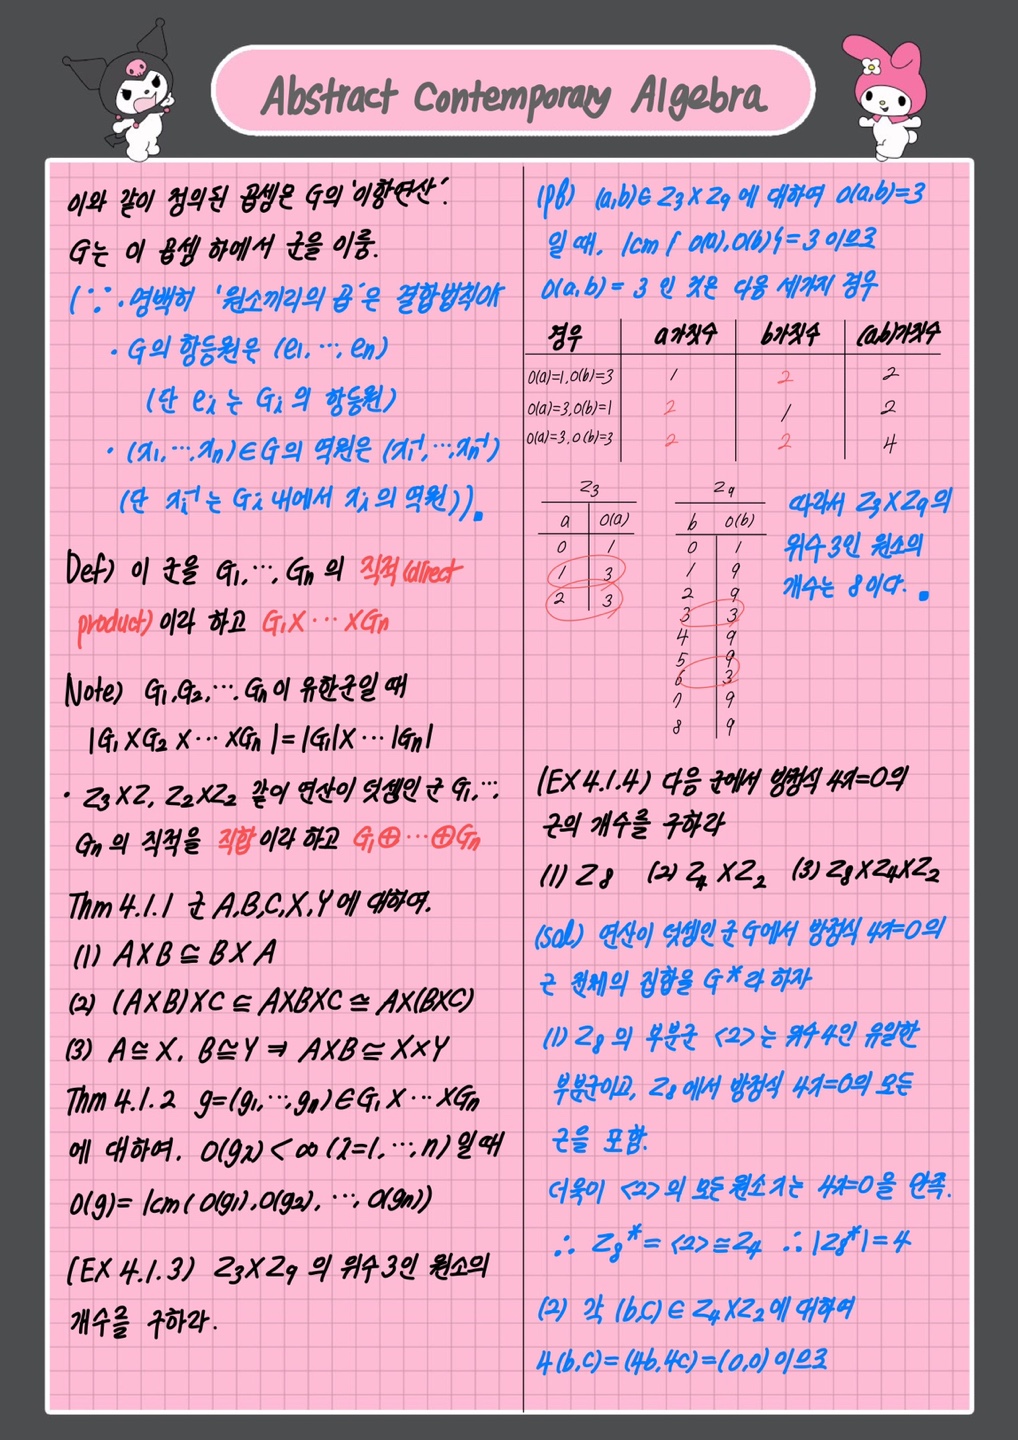 Abstract Contemporary Algebra
이와 같이 정의된 곱셈은 G의 '이항연산'.
G는 이 곱셈 하에서 군을 이룸.
(∵ · 명백히 '원소끼리의 곱'은 결합법칙야
· G의 항등원은 (e1, ···, en)
(단 ei는 Gi의 항등원)
· (x1, ···, xn)∈G의 역원은 (x1⁻¹, ···, xn⁻¹)
(단 xi⁻¹는 Gi 내에서 xi의 역원)).
Def) 이 군을 G1, ···, Gn의 직적(direct
product)이라 하고 G1×···×Gn
Note) G1, G2, ···, Gn이 유한군일 때
|G1×G2×···×Gn|=|G1|×···|Gn|
· Z3×Z, Z2×Z2 같이 연산이 덧셈인 군 G1, ···,
Gn의 직적을 직합이라 하고 G1⊕···⊕Gn
Thm 4.1.1 군 A,B,C,X,Y에 대하여.
(1) A×B ≅ B×A
(2) (A×B)×C ≅ A×B×C ≅ A×(B×C)
(3) A≅X, B≅Y ⇒ A×B≅X×Y
Thm 4.1.2 g=(g1, ···, gn)∈G1×···×Gn
에 대하여. O(gi)<∞ (i=1, ···, n)일 때
O(g)=lcm(O(g1),O(g2), ···, O(gn))
(EX 4.1.3) Z3×Z9의 위수 3인 원소의
개수를 구하라.
(pf) (a,b)∈Z3×Z9에 대하여 O(a,b)=3
일 때, lcm{O(a),O(b)}=3이므로
O(a,b)=3인 것은 다음 세가지 경우
경우 a가짓수 b가짓수 (a,b)가짓수
O(a)=1, O(b)=3 1 2 2
O(a)=3, O(b)=1 2 1 2
O(a)=3, O(b)=3 2 2 4
Z3
a O(a)
0 1
1 3
2 3
Z9
b O(b)
0 1
1 9
2 9
3 3
4 9
5 9
6 3
7 9
8 9
따라서 Z3×Z9의
위수 3인 원소의
개수는 8이다.
(EX 4.1.4) 다음 군에서 방정식 4x=0의
근의 개수를 구하라
(1) Z8 (2) Z4×Z2 (3) Z8×Z4×Z2
(sol) 연산이 덧셈인 군 G에서 방정식 4x=0의
근 전체의 집합을 G*라 하자
(1) Z8의 부분군 <2>는 위수 4인 유일한
부분군이고, Z8에서 방정식 4x=0의 모든
근을 포함.
더욱이 <2>의 모든 원소 x는 4x=0을 만족.
∴ Z8*=<2>≅Z4 ∴ |Z8*|=4
(2) 각 (b,c)∈Z4×Z2에 대하여
4(b,c)=(4b,4c)=(0,0)이므로